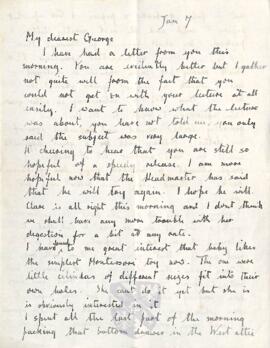 Jan 7
My dearest George
I have had a letter from you this
morning. You are evidently better but I gather
not quite well from the fact that you
could not get on with your lecture at all
easily. I want to know what the lecture
was about, you have not told me, you only
said the subject was very large.
It cheering to hear that you are still so
hopeful of a speedy release. I am more
hopeful now that the Headmaster has said
that he will try again. I hope he will.
Clare is all right this morning and I dont think
we shall have any more trouble with her
digestion for a bit at any rate.
I have to me great interest that baby likes
the simplest Montessori toy now. The one were
little cilindars of different sizes fit into their
own holes. She cant do it yet but she is
is obviously interested in it
I spent all the last part of the morning
packing that bottom drawer in the West attic